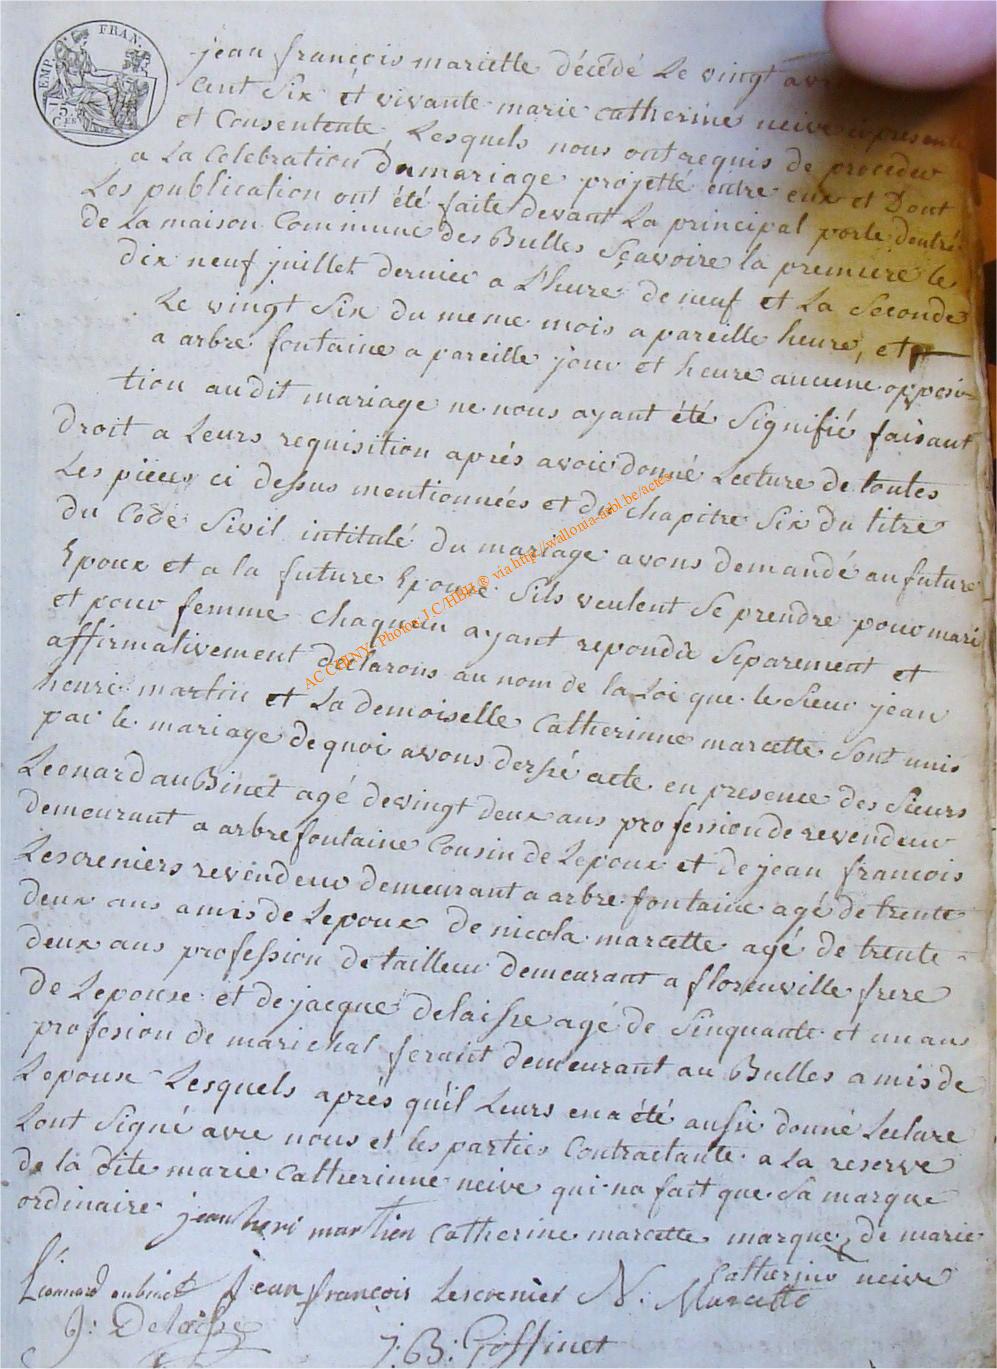 EMP. FRAN.
jean françois marcette décédé Le vingt
cent Six et vivante marie catherine neive ci presente
et Consentente Lesquels nous ont requis de proceder
a La Celebration du mariage projetté entre eux et Dont
Les publication ont été faite devant La principal porte dentré
de La maison Commune des Bulles Sçavoire la premiere le
dix neuf juillet dernier a L'heure de neuf et La Seconde
Le vingt Six du meme mois a pareille heure, et
a arbre fontaine a pareille jour et heure aucune opposi
tion audit mariage ne nous ayant été Signifié faisant
droit a Leurs requisition aprés avoir donné Lecture de toutes
Les pieces ci dessus mentionnées et du chapitre Six du titre
du Code Sivil intitulé du mariage avons demandé au future
Epoux et a la future Epouse Sils veulent Se prendre pour mari
et pour femme chaquun ayant repondu Separement et
affirmativement declarons au nom de la Loi que le Sieur jean
henri martin et La demoiselle Catherinne marcette Sont unis
par le mariage de quoi avons dersé acte en presence des Sieurs
Leonard auBinet agé de vingt deux ans profession de revendeur
demeurant a arbrefontaine Cousin de Lepoux et de jean francois
Lescreniers revendeur demeurant a arbre fontaine agé de trente
deux ans amis de Lepoux de nicola marcette agé de trente
deux ans profession de tailleur demeurant a florenville frere
de Lepouse et de jacque delaisse agé de Sinquante et un ans
profesion de marichal ferant demeurant au Bulles amis de
Lepoux Lesquels aprés qu'il Leurs en a été aussi donné Lecture
Lont Signé avec nous et les parties Contractante a La reserve
de la dite marie Catherinne neive qui na fait que Sa marque
ordinaire jean henri martien Catherine marcette marque de marie
Catherine neive
Léonnard aubinet Jean françois Lescrenier N. Marcette
J: Delaisse
J: B: Goffinet
ACCERNY Photos J C/HBH ® via http://wallonia-asbl.be/actes